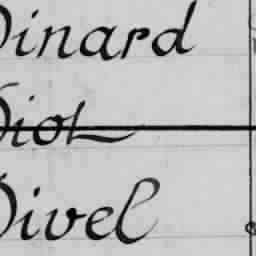 Dinard
Diot
Divel